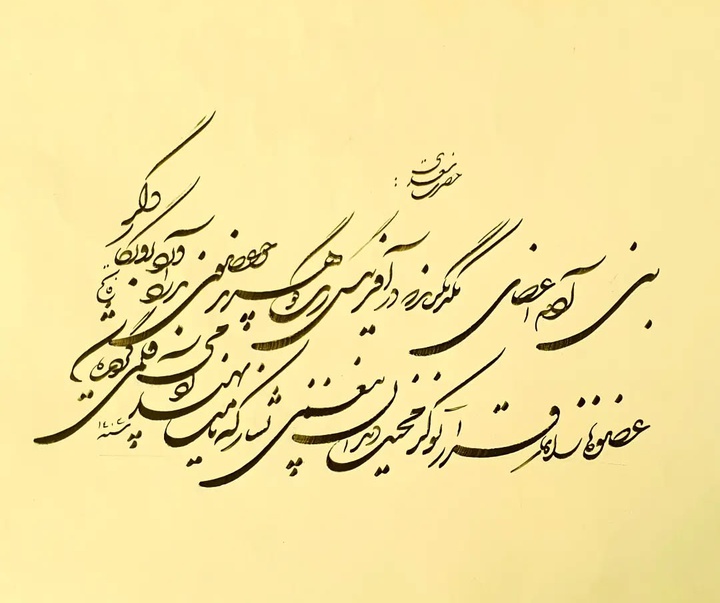 حضرت سعدی :
بنی آدم اعضای یکدیگرند که در آفرینش ز یک گوهرند چو عضوی بدرد آورد روزگار دگر
عضوها را نماند قرار تو کز محنت دیگران بی غمی نشاید که نامت نهند آدمی قلمی گردید